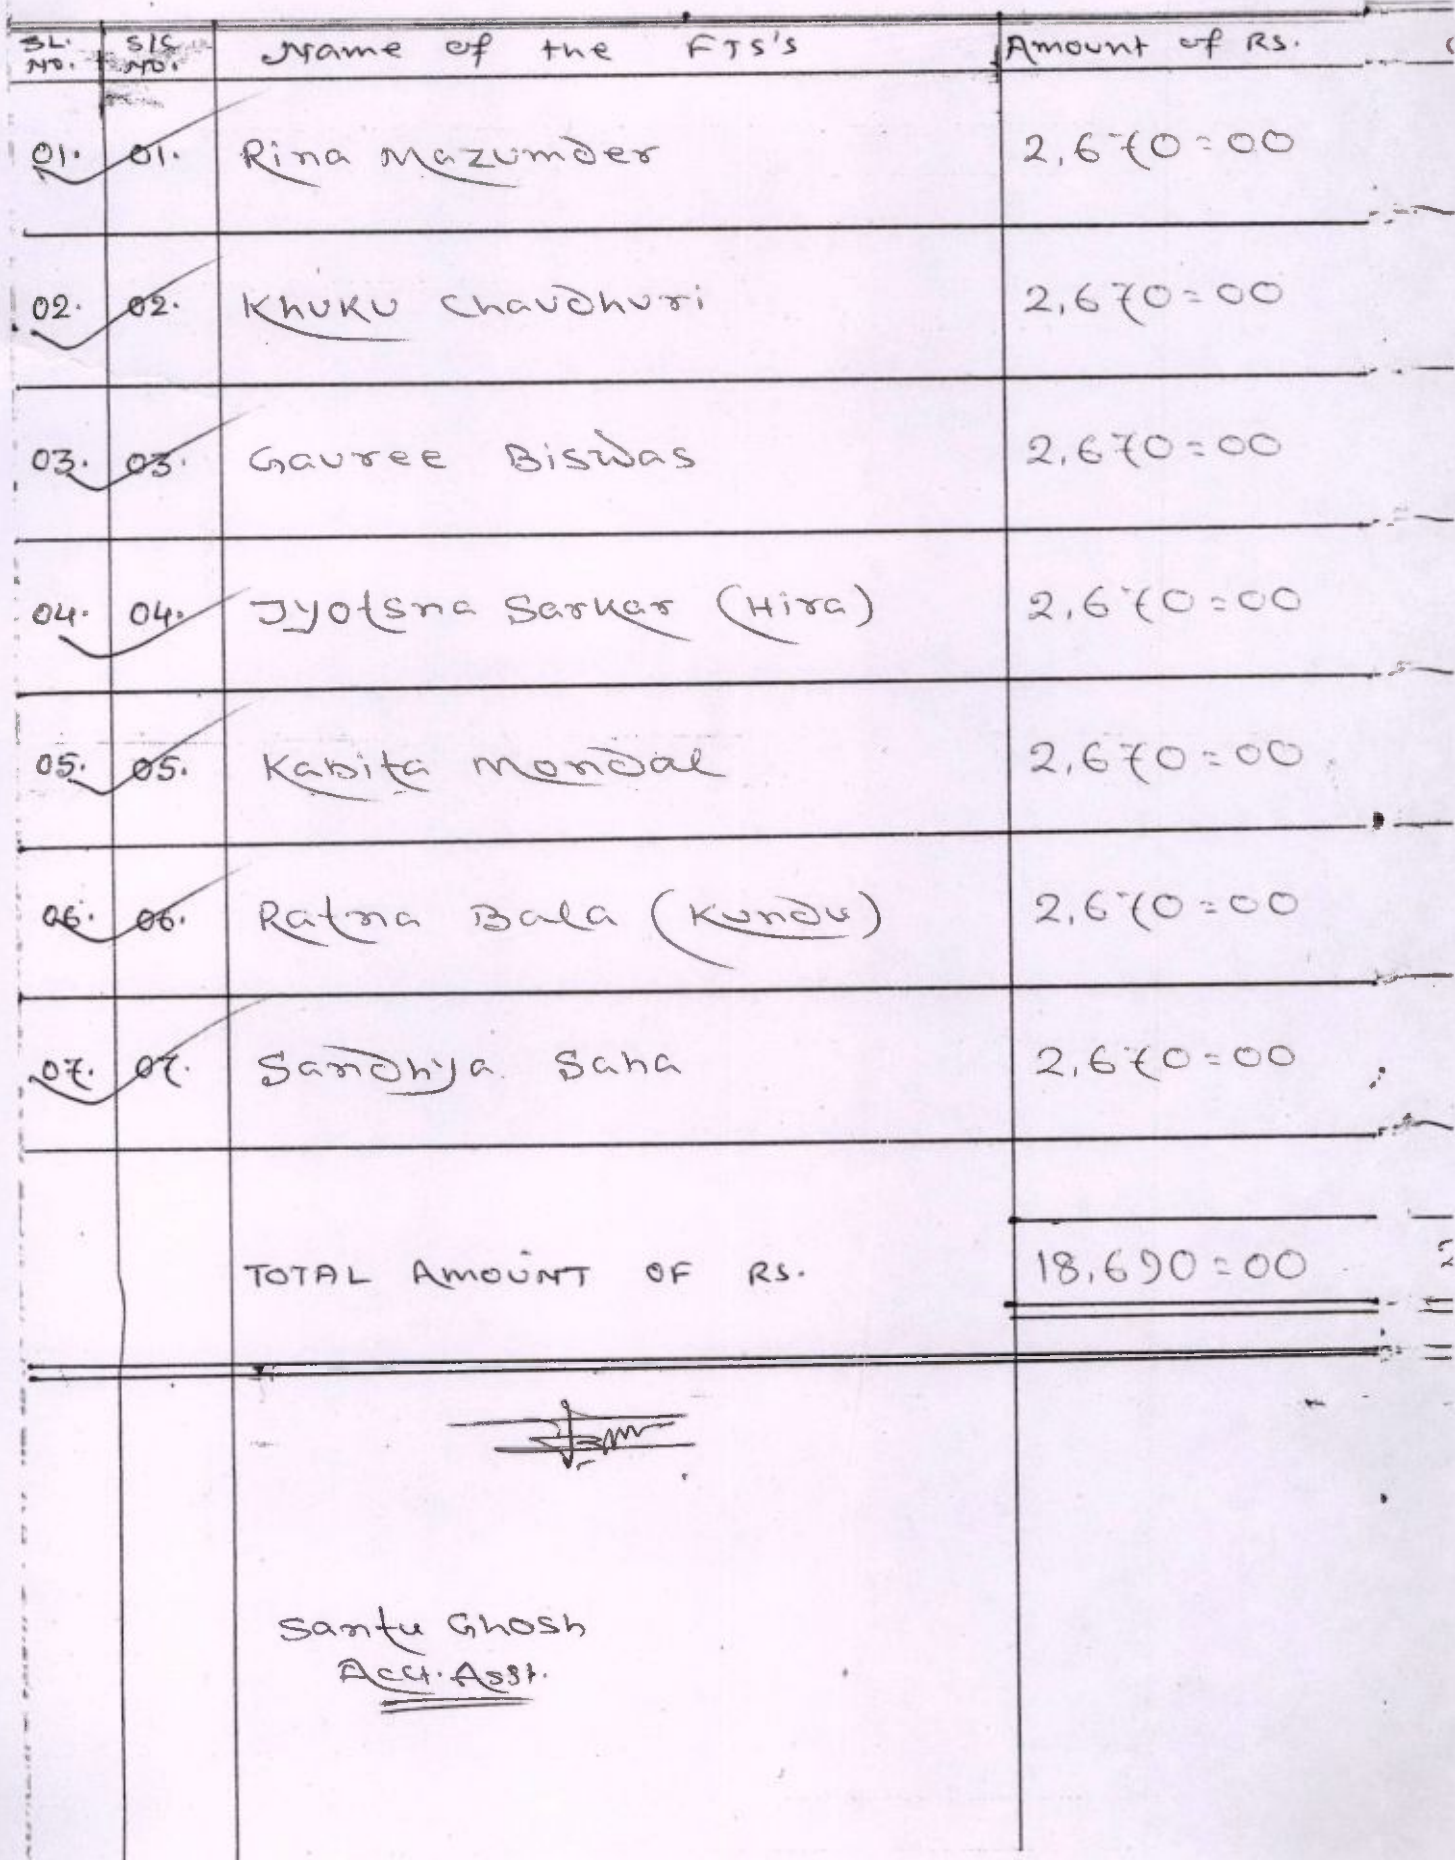 SL. NO. S/C NO. Name of the FTS's Amount of RS.
01. 01. Rina Mazumder 2,670=00
02. 02. Khuku Chaudhuri 2,670=00
03. 03. Gauree Biswas 2,670=00
04. 04. Jyotsna Sarkar (Hira) 2,670=00
05. 05. Kabita Mondal 2,670=00
06. 06. Ratna Bala (Kundu) 2,670=00
07. 07. Sandhya Saha 2,670=00
TOTAL AMOUNT OF RS. 18,690=00
Santu Ghosh
Acct. Asst.